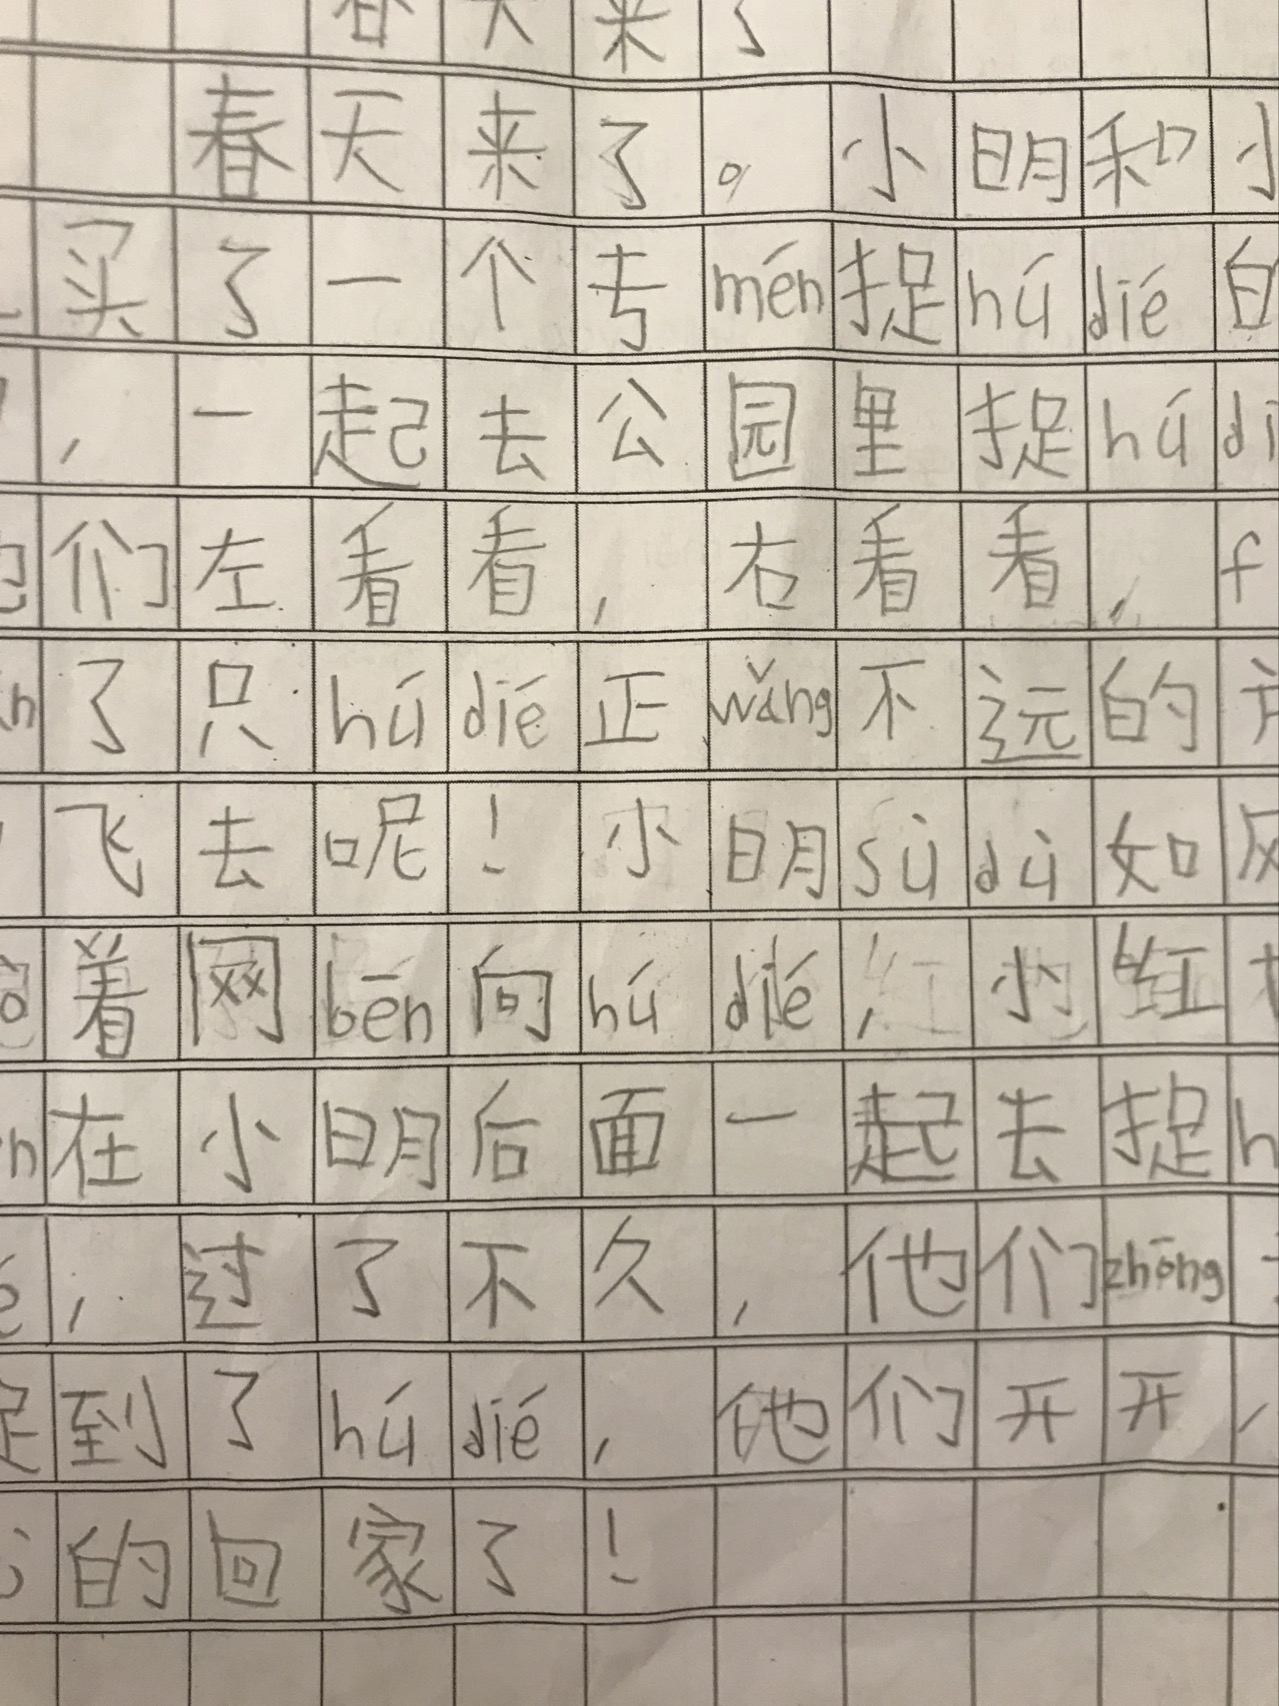 春天来了
春天来了。小明和小
买了一个专mén捉hú dié的
，一起去公园里捉hú di
们左看看，右看看，f
n了只hú dié正wǎng不远的
飞去呢！小明sù dù如风
着网bēn向hú dié，小红
n在小明后面一起去捉h
é，过了不久，他们zhōng
捉到了hú dié，他们开开，
的回家了！